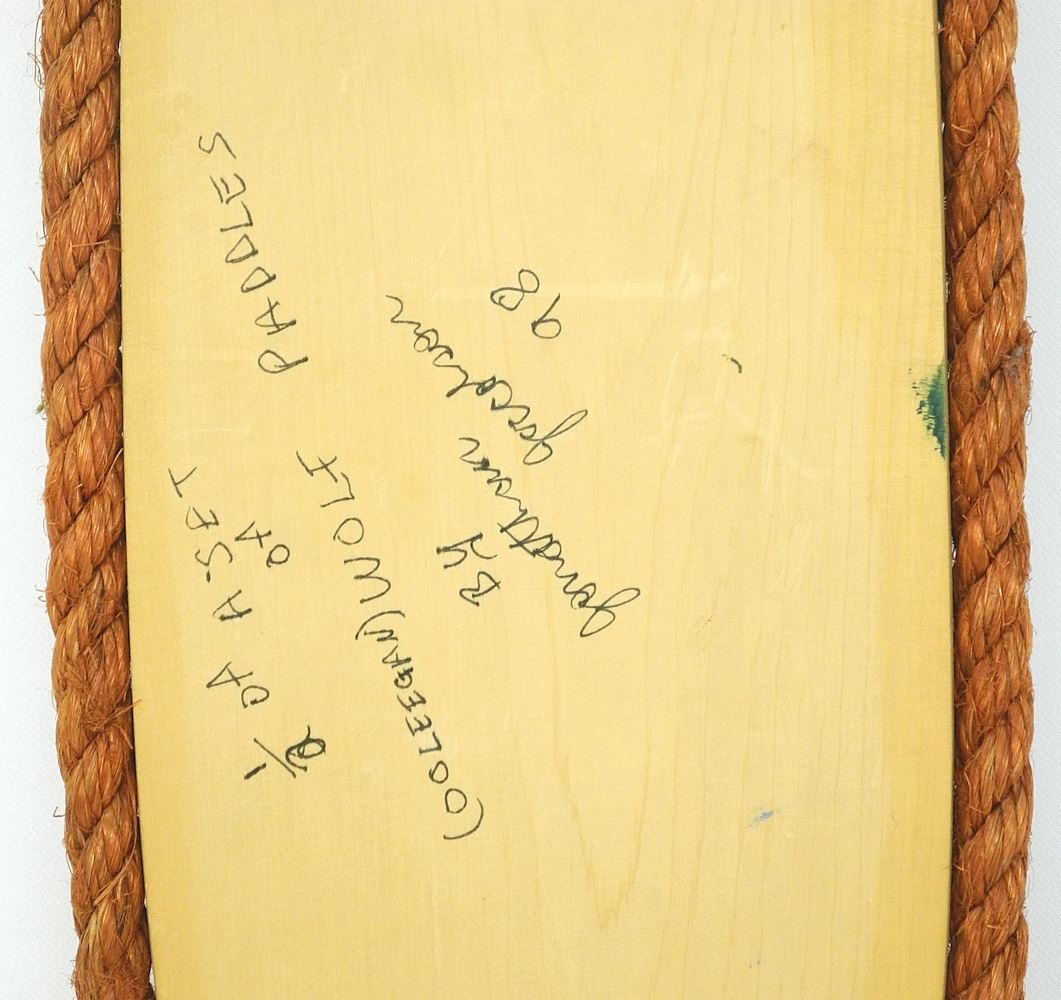 1/2 OF A SET
OF PADDLES
(OOLEEGAN) WOLF
BY
Jonathan Jacobson
98